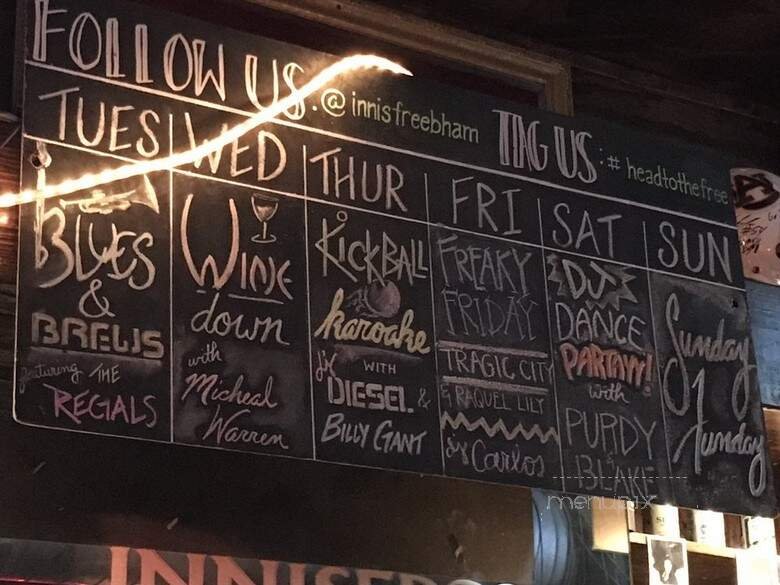 FOLLOW US: @innisfreebham TAG US: #headtothefree
TUES
BLUES
&
BREWS
featuring THE
REGALS
WED
WINE
down
with
Micheal
Warren
THUR
KICKBALL
karoake
WITH
DIESEL &
BILLY GANT
FRI
FREAKY
FRIDAY
TRAGIC CITY
& RAQUEL LILY
Carlos
SAT
DJ
DANCE
PARTAYY!
with
PURDY
BLAKE
SUN
Sunday
Funday
menupix